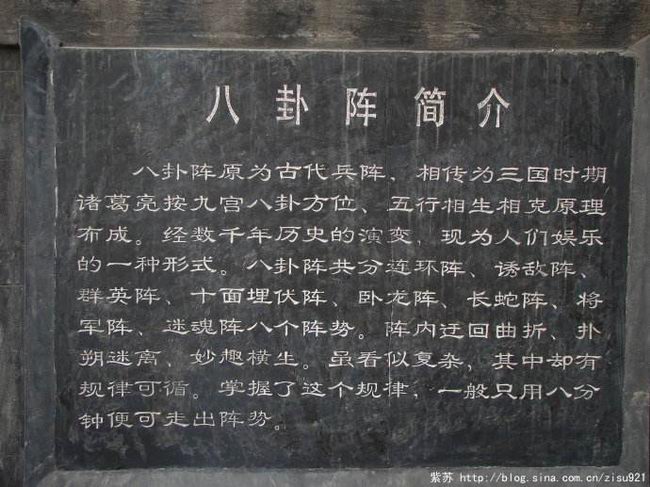 八卦阵简介
八卦阵原为古代兵阵、相传为三国时期
诸葛亮按九宫八卦方位、五行相生相克原理
布成。经数千年历史的演变，现为人们娱乐
的一种形式。八卦阵共分连环阵、诱敌阵、
群英阵、十面埋伏阵、卧龙阵、长蛇阵、将
军阵、迷魂阵八个阵势。阵内迂回曲折、扑
朔迷离、妙趣横生。虽看似复杂，其中却有
规律可循。掌握了这个规律，一般只用八分
钟便可走出阵势。
紫苏 http://blog.sina.com.cn/zisu921